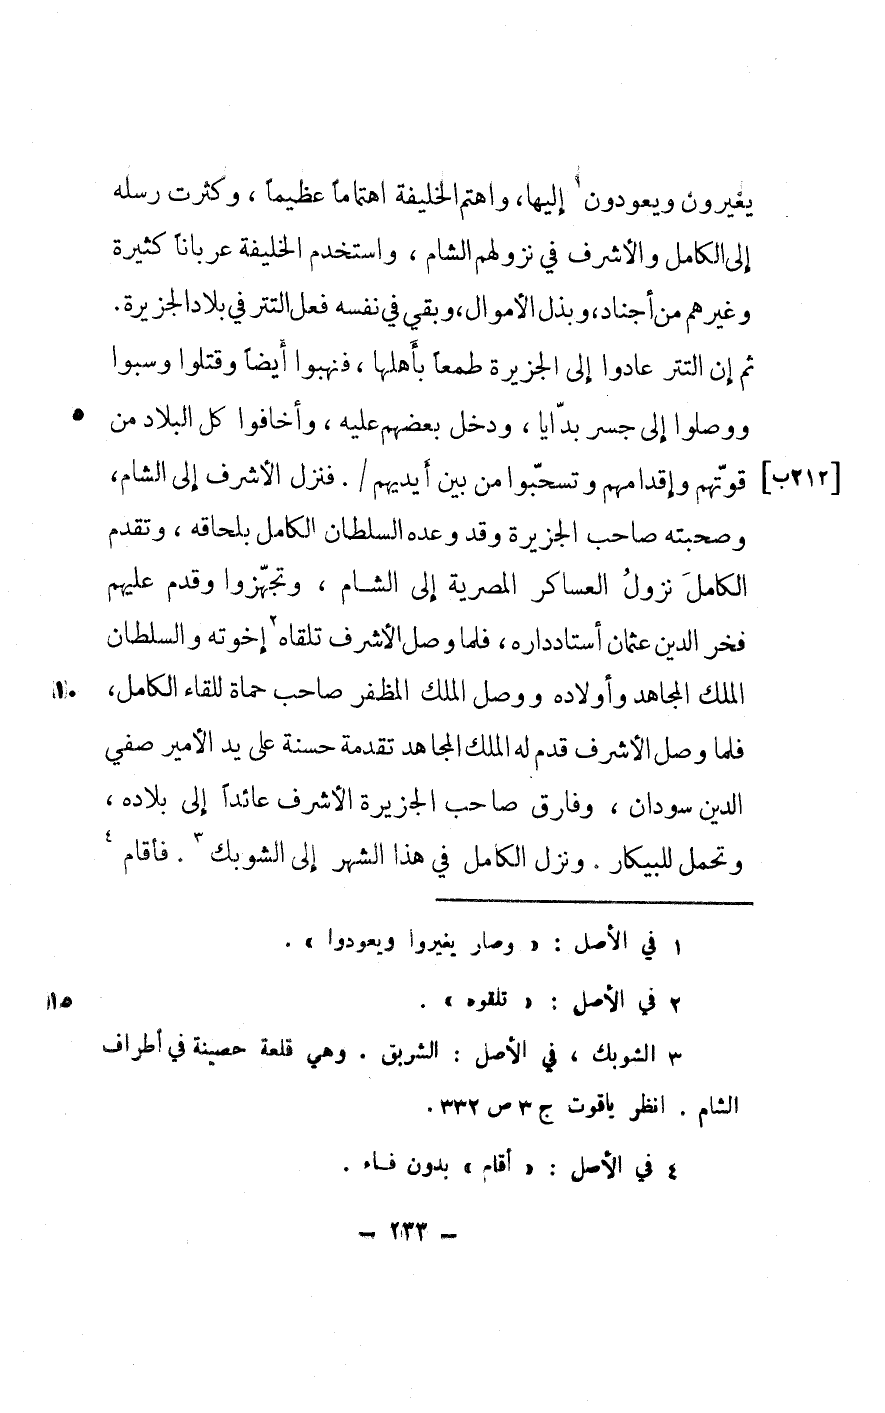 يغيرون ويعودون١ إليها، واهتم الخليفة اهتماماً عظيماً ، وكثرت رسله
إلى الكامل والأشرف في نزولهم الشام ، واستخدم الخليفة عرباناً كثيرة
وغيرهم من أجناد، وبذل الأموال، وبقي في نفسه فعل التتر في بلاد الجزيرة.
ثم إن التتر عادوا إلى الجزيرة طمعاً بأهلها ، فنهبوا أيضاً وقتلوا وسبوا
ووصلوا إلى جسر بدّايا ، ودخل بعضهم عليه ، وأخافوا كل البلاد من ٥
[٢١٢ب] قوتّهم وإقدامهم وتسحّبوا من بين أيديهم / . فنزل الأشرف إلى الشام،
وصحبته صاحب الجزيرة وقد وعده السلطان الكامل بلحاقه ، وتقدم
الكاملَ نزولُ العساكر المصرية إلى الشام ، وتجهّزوا وقدم عليهم
فخر الدين عثمان أستادداره، فلما وصل الأشرف تلقاه٢ إخوته والسلطان
الملك المجاهد وأولاده ووصل الملك المظفر صاحب حماة للقاء الكامل، ١٠
فلما وصل الأشرف قدم له الملك المجاهد تقدمة حسنة على يد الأمير صفي
الدين سودان ، وفارق صاحب الجزيرة الأشرف عائداً إلى بلاده ،
وتحمل للبيكار . ونزل الكامل في هذا الشهر إلى الشوبك٣ . فأقام٤
١ في الأصل : « وصار يغيروا ويعودوا » .
٢ في الأصل : « تلقوه » . ١٥
٣ الشوبك ، في الأصل : الشربق . وهي قلعة حصينة في أطراف
الشام . انظر ياقوت ج ٣ ص ٣٣٢.
٤ في الأصل : « أقام » بدون فاء .
– ٢٣٣ –